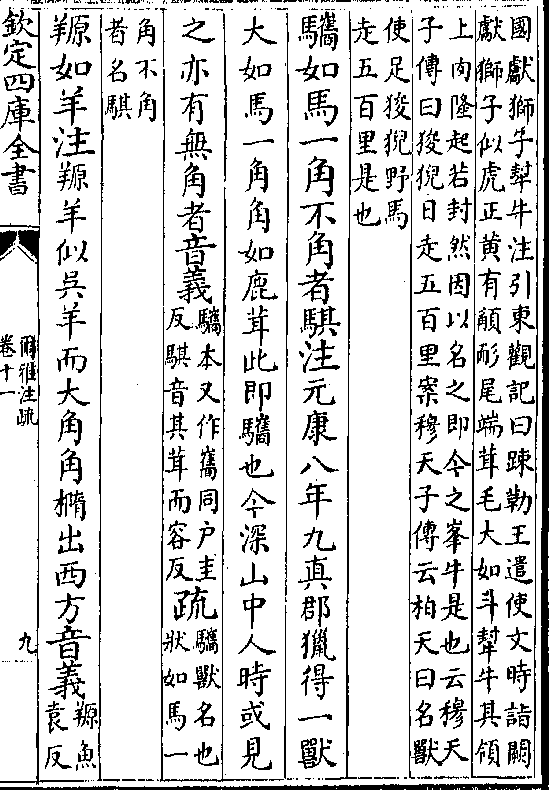 國獻獅子犎牛注引東觀記曰踈勒王遣使文時詣闕
獻獅子似虎正黄有䫇耏尾端茸毛大如斗犎牛其領
上肉隆起若封然因以名之即今之峯牛是也云穆天
子傳曰狻猊日走五百里案穆天子傳云柏天曰名獸
使足狻猊野馬
走五百里是也
驨如馬一角不角者騏注元康八年九真郡獵得一獸
大如馬一角角如鹿茸此即驨也今深山中人時或見
之亦有無角者音義
驨本又作㒞同户圭
反騏音其茸而容反
疏
驨獸名也
狀如馬一
角不角
者名騏
羱如羊注羱羊似吳羊而大角角橢出西方音義
羱魚
袁反
欽定四庫全書
爾雅注疏
卷十一
九